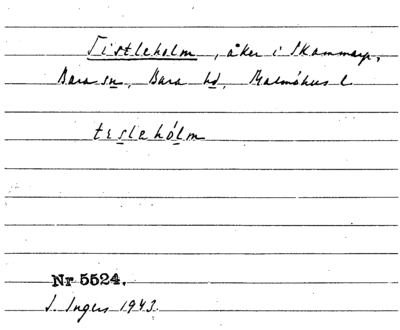 Tistleholm, åker i Skammarp,
Bara sn, Bara hd, Malmöhus l.
tesleholm
Nr 5524.
I. Ingers 1943.